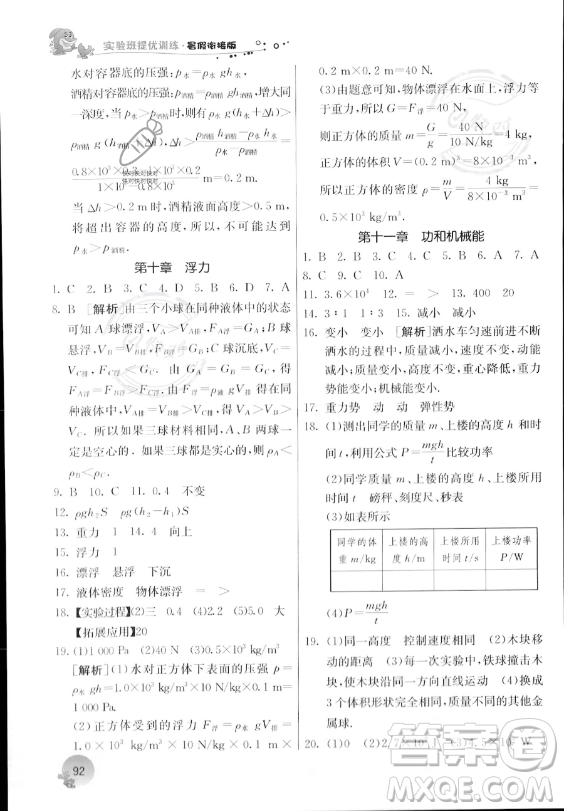 实验班提优训练·暑假衔接版
水对容器底的压强：p水=ρ水gh水，
酒精对容器底的压强：p酒精=ρ酒精gh酒精。增大同
一深度，当p水>p酒精时，ρ水g(h水+Δh)>
ρ酒精g(h酒精+Δh)，Δh>
=0.2 m。
当Δh>0.2 m时，酒精液面高度>0.5 m，
将超出容器的高度，所以，不可能实现
p水>p酒精。
第十章 浮力
1. C 2. B 3. D 4. C 5. B 6. A 7. A
8. B [解析]由三个小球在同种液体中的状态
可知A球漂浮，VA>VA排，B球悬
浮，VB=VB排；C球沉底，VC=
VC排。因为FA浮>FB浮=FC浮，在同
种液体中，VA排>VB排=VC排，故VA>VB=
VC。所以如果三球材料相同，B球一
定是空心的；如果三球都是实心的，ρA>
ρB。
9. B 10. C 11. 0.4 不变
12. ρgh₂S ρg(h₂−h₁)S
13. 重力 1 14. 4 向上
15. 浮力 1
16. 漂浮 悬浮 下沉
17. 液体密度 物体漂浮 = >
18. 【实验过程】(2)三 0.4 (4)2.2 (5)5.0 大
【拓展应用】20
19. (1)1 000 Pa (2)40 N (3)0.5×10³ kg/m³
[解析](1)水对正方体下表面的压强p=
ρgh=1.0×10³ kg/m³×10 N/kg×0.1 m=
1 000 Pa。
(2)正方体受到的浮力F浮=ρgV排=
1.0×10³ kg/m³×10 N/kg×0.1 m×
92
0.2 m×0.2 m=40 N。
(3)由题意可知，物体漂浮在水面上，浮力等
于重力，所以G=F浮=40 N，
则正方体的质量m=G/g=40 N/10 N/kg=4 kg，
正方体的体积V=(0.2 m)³=8×10⁻³ m³，
所以正方体的密度ρ=m/V=4 kg/8×10⁻³ m³=
0.5×10³ kg/m³。
第十一章 功和机械能
1. B 2. B 3. A 4. A 5. B 6. D 7. A
8. C 9. C 10. A
11. 3.6×10⁴ 12. = > 13. 400 20
14. 3∶1 1∶3 15. 减小 减小
16. 变小 变小 [解析]洒水车匀速前进不断
洒水的过程中，质量减小，速度不变，动能
减小；质量减小，高度不变，重心降低，重力
势能变小；机械能变小。
17. 重力势 动 动 弹性势
18. (1)测出同学的质量m、上楼的高度h、上楼的
时间t，利用公式P=mgh/t
(2)同学质量m、上楼的高度h、上楼所用的
时间t 磅秤、刻度尺、秒表
(3)如表所示
同学的体 上楼的高 上楼所用 上楼功率
重m/kg 度h/m 时间t/s P/W
(4)P=mgh/t
19. (1)同一高度 控制速度相同 (2)木块移
动的距离 (3)每一次实验，铁球撞击木
块，使木块沿同一方向直线运动 (4)换成
3个体积形状完全相同，质量不同的其他金
属球.
20. (1)0
作业精灵